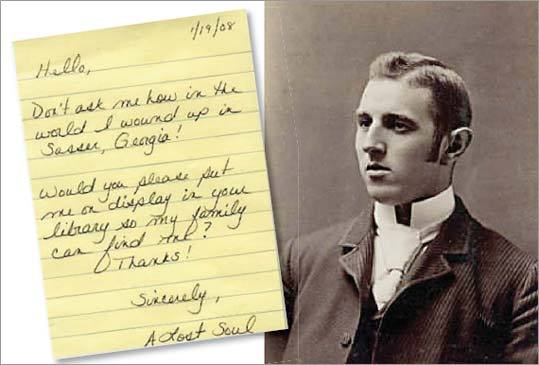 1/19/08
Hello,
Don't ask me how in the
world I wound up in
Sasser, Georgia!
Would you please put
me on display in your
library so my family
can find me?
Thanks!
Sincerely,
A Lost Soul